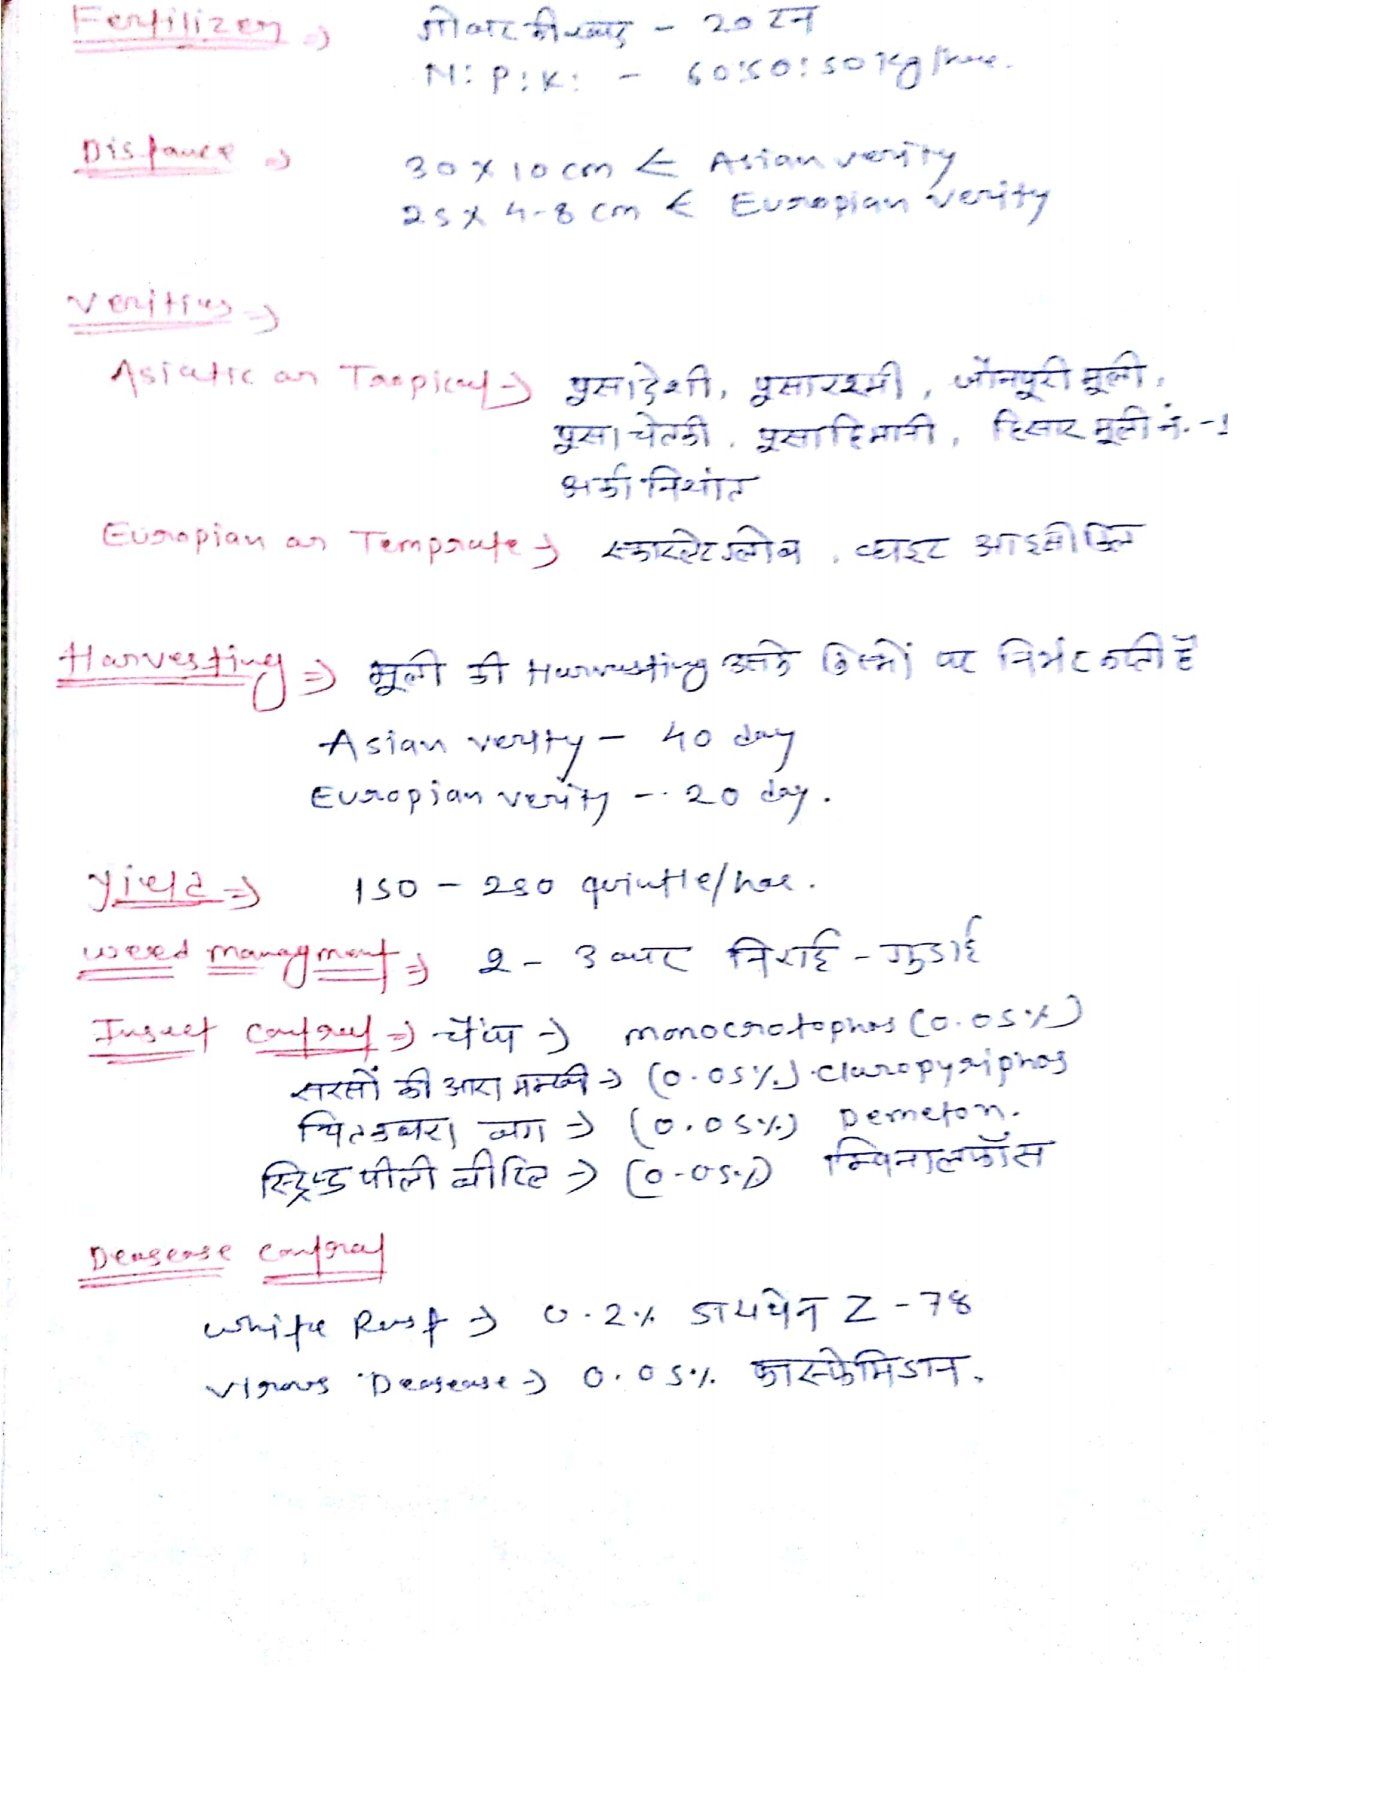 Fertilizer ⇒ गोबर की खाद - 20 टन
N: P: K: - 60:50:50 kg/hae.
Distance ⇒ 30 x 10 cm ← Asian verity
25 x 4-8 cm ← Europian verity
Verities ⇒
Asiatic or Tropical → पूसा देशी, पूसा रश्मी, जौनपूरी मूली,
पूसा चेतकी, पूसा हिमानी, हिसार मूली नं. -1
अर्का निशांत
Europian or Temprate → स्कारलेट ग्लोब, व्हाइट आइसीकिल
Harvesting ⇒ मूली की Harvesting उसके किस्मों पर निर्भर करती है
Asian verity - 40 day
Europian verity - 20 day.
Yield ⇒ 150 - 250 quintle/hae.
Weed managment ⇒ 2 - 3 बार निराई - गुडाई
Insect control ⇒ चैंपा → monocrotophos (0.05%)
सरसों की आरा मक्खी → (0.05%) Cloropyriphos
चितकबरा बग → (0.05%) Demeton.
स्ट्रिप्ड पीली बीटिल → (0.05%) क्विनालफॉस
Deasease control
White Rust → 0.2% डायथेन Z - 78
Virous Deasease → 0.05% फास्फेमिडान.